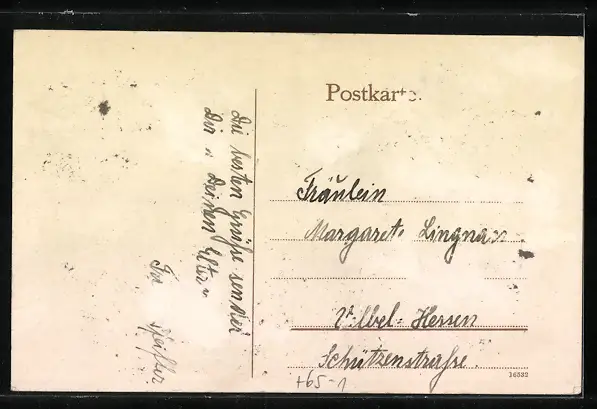 Postkarte.
Die besten Grüße sendet
Dir u. Deinen Eltern
Fräulein
Margarete Lingnau
Vilbel-Hessen
Schützenstraße.
16532
+65-1